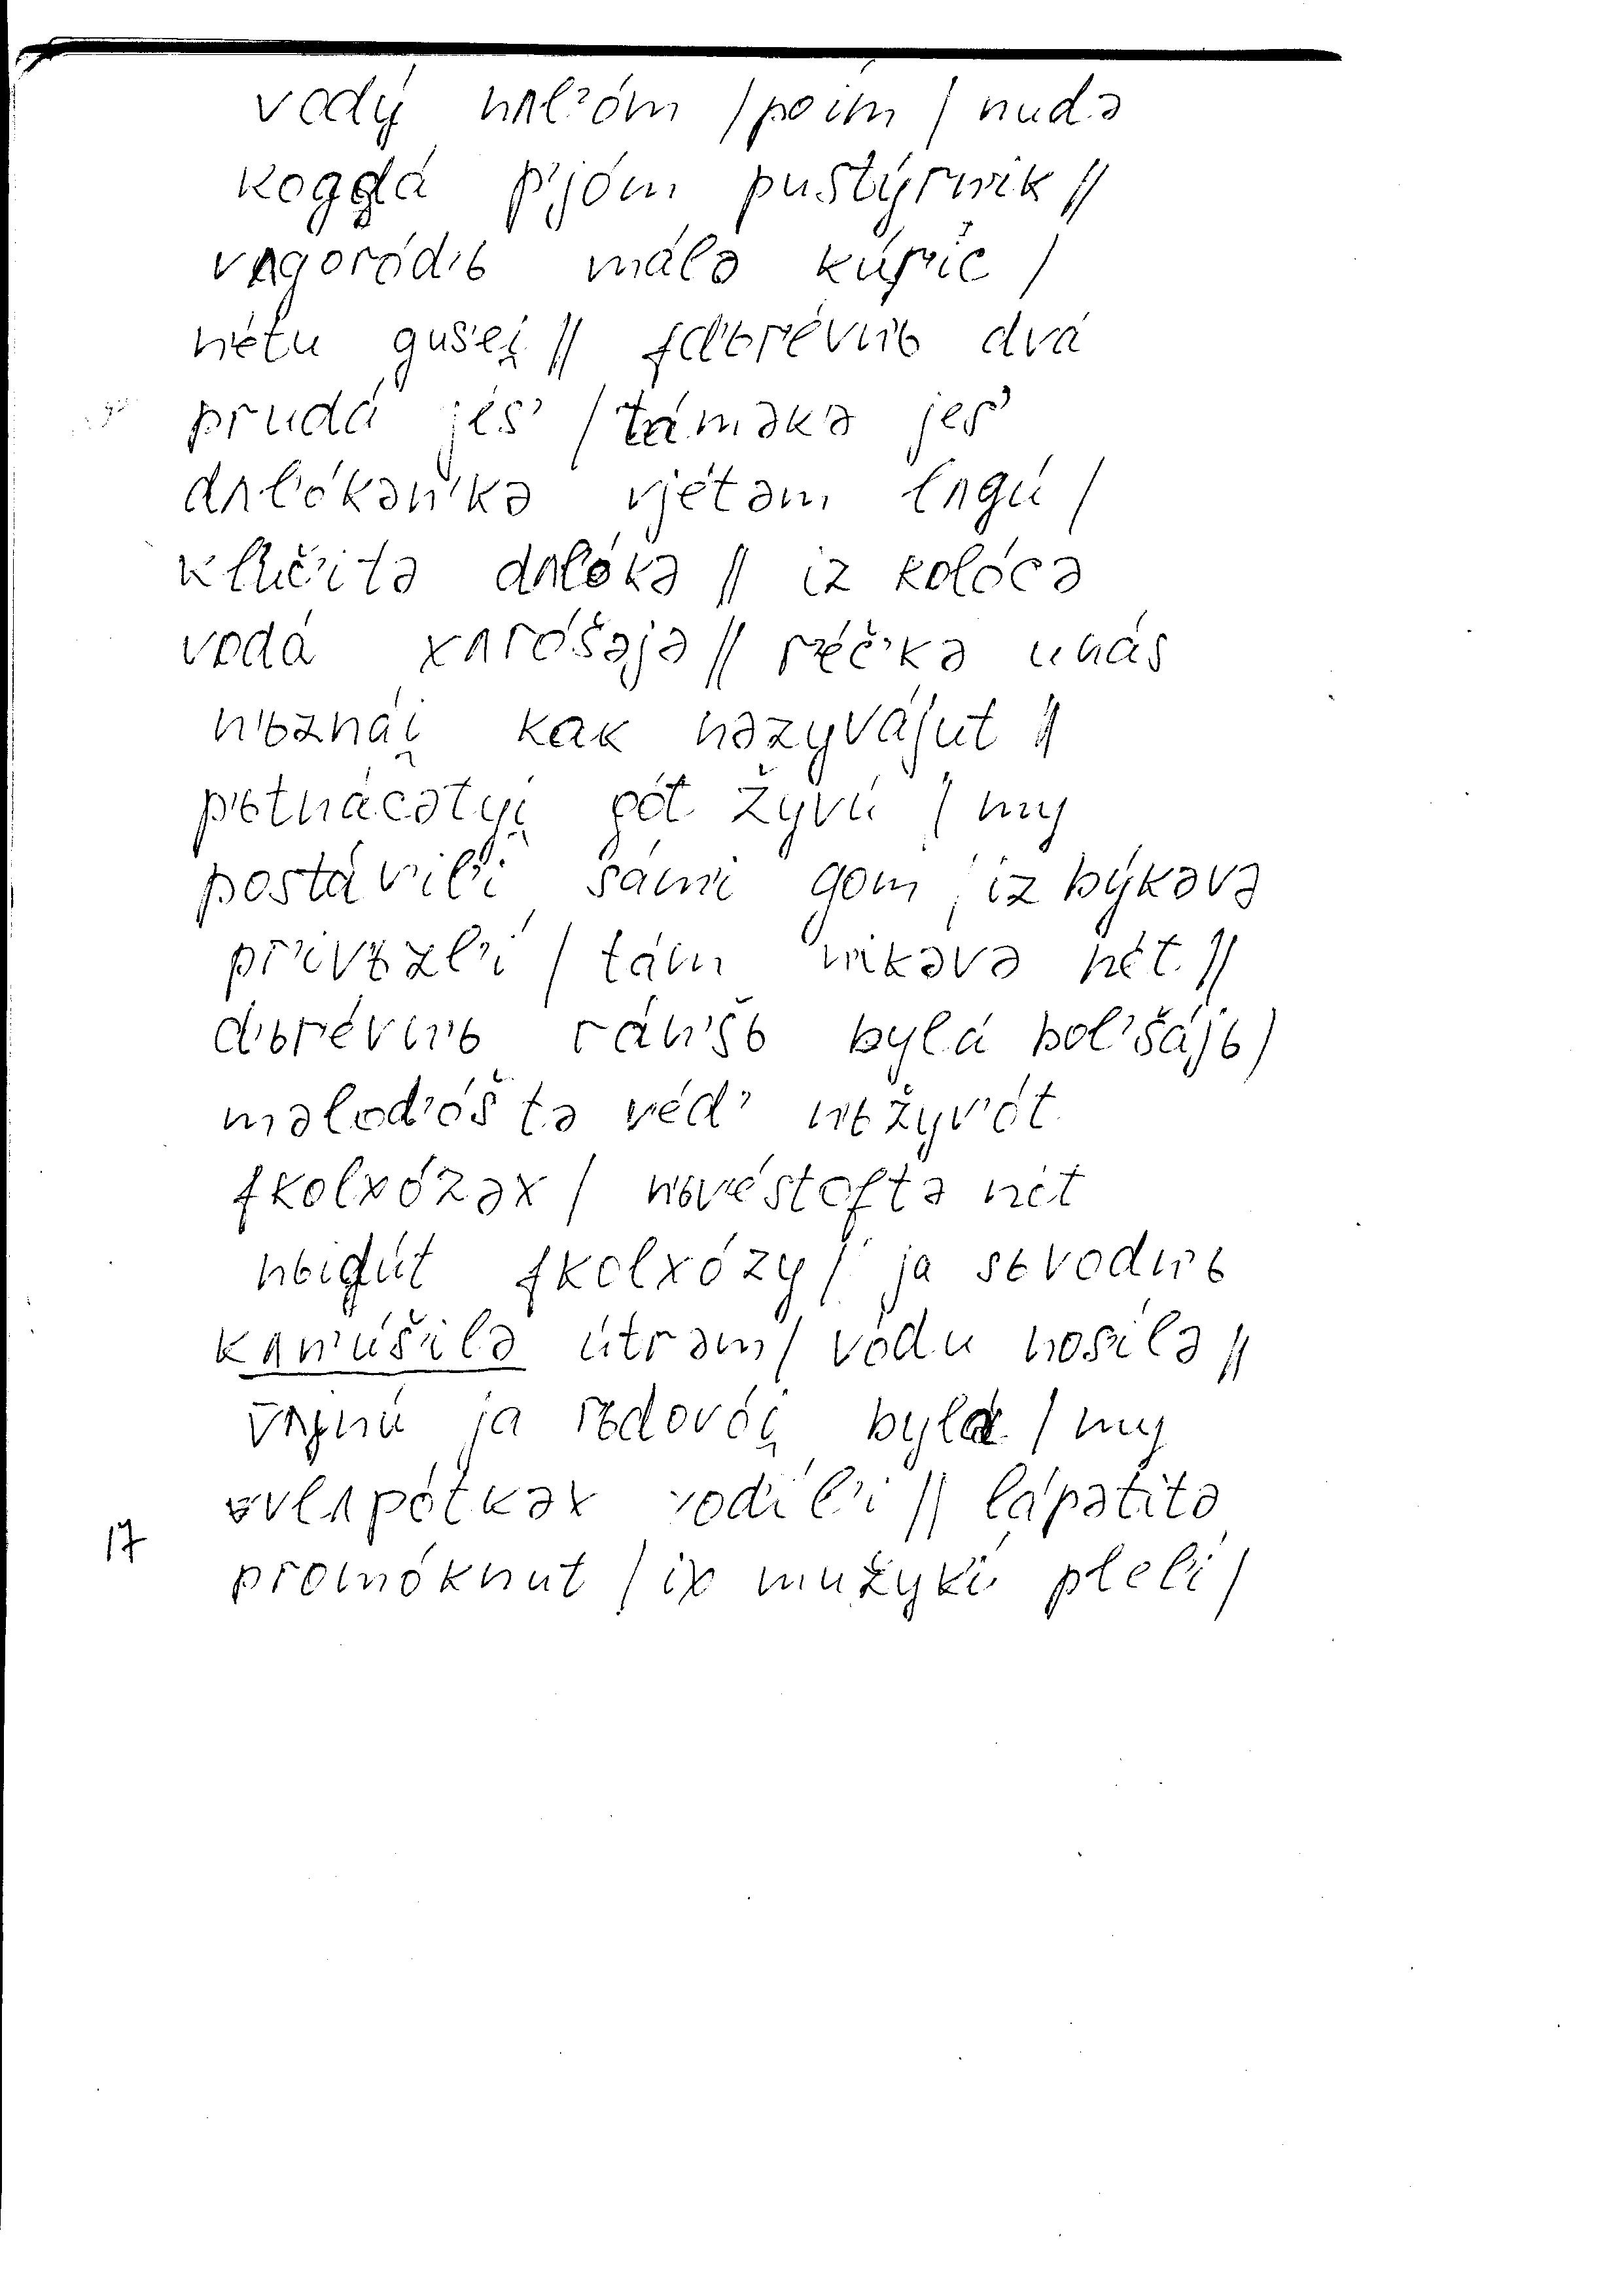 vodý nʌl'óm / poím / nudə
kogdá p'jóm pustýrn'ik //
vʌgoród'ь málə kúr'ic /
n'étu gus'éi̯ // fd'ьr'évn'ь dvá
prudá jés' / táməkə jes'
dʌl'ókən'kə vjétəm lʌgú /
kl'uč'itə dʌl'ókə // iz kolócə
vodá xʌróšəjə // r'éč'kə unás
n'ьznái̯ kak nəzyvájut //
p'ьtnácətyi̯ gót žyvú / my
postáv'il'i sám'i gom / iz býkəvə
pr'iv'ьzl'í / tám n'ikəvə n'ét //
d'ьr'évn'ь rán'šь bylá bol'šájь /
məlod'óš tə v'éd' n'ьžyv'ót
fkolxózəx / n'ьv'éstoftə n'ét
n'ьidút fkolxózy / ja s'ьvodn'ь
kʌn'úšilə útrəm / vódu nos'ílə //
v̄ʌi̯nú ja r'ьdovói̯ bylá / my
vlʌpótkəx xod'íl'i // lápət'itə
promóknut / ix mužyk'í pl'el'í /
17